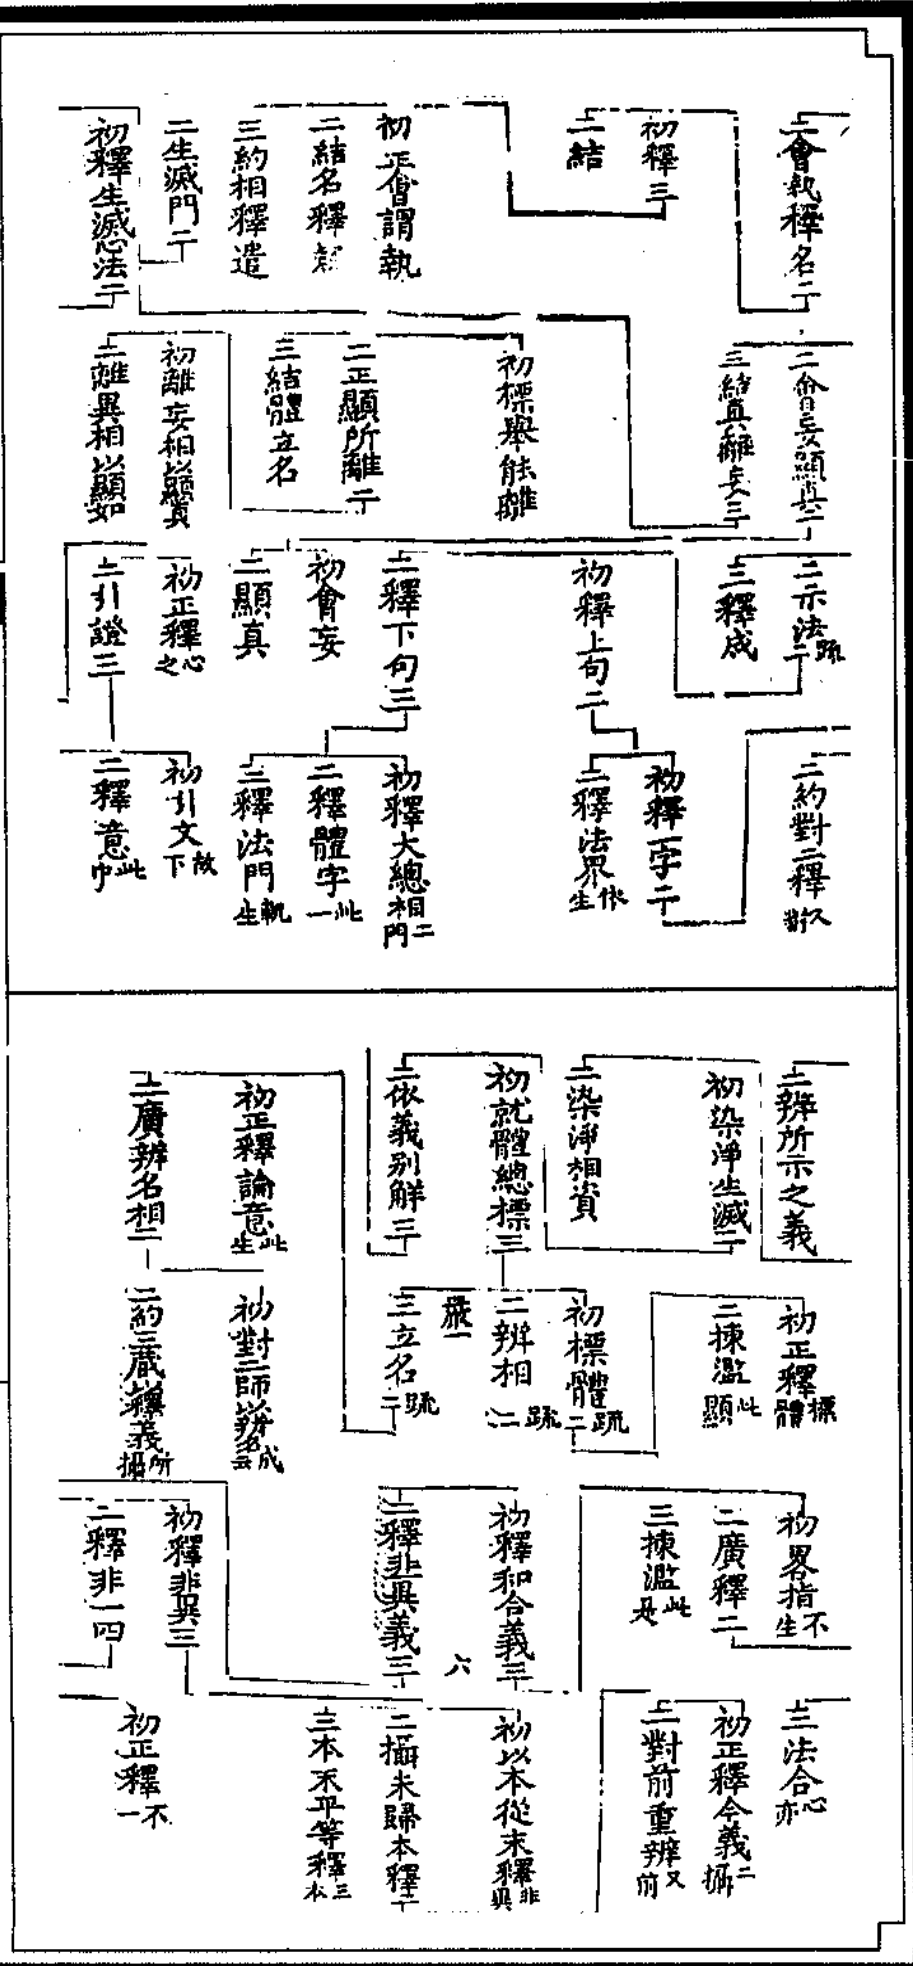 二會執釋名二
初釋三
二結
初正會謂執
二結名釋疑
三約相釋遣
二生滅門二
初釋生滅心法二
二會妄顯真二
三結真離妄三
初標舉能離
二正顯所離二
三結體立名
初離妄相以顯真
二離異相以顯如
二示法二 疏
三釋成
初釋上句二
二釋下句三
初會妄
二顯真
初正釋 心之
二引證三
二約對二釋 又對
初釋一字二
二釋法界 依生
初釋大總相門二
二釋體字 此一
三釋法門 軌生
初引文 故下
二釋意 此中
二辨所示之義
初染淨生滅二
二染淨相資
初就體總標三
二依義別解三
初正釋論意 此生
二廣辨名相二
初正釋 標體
二揀濫 此顯
初標體 疏二
二辨相 疏二
三立名 疏二
嚴一
初對二師以辨名 成云
二約三藏以釋義 所攝
初畧指 不生
二廣釋二
三揀濫 此是
初釋和合義三
二釋非異義三
初釋非異三
二釋非一四
三法合 心亦
初正釋今義 二攝
二對前重辨 又前
六
初以本從末釋 非異
二攝末歸本釋二
三本末平等釋 三本
初正釋 不一